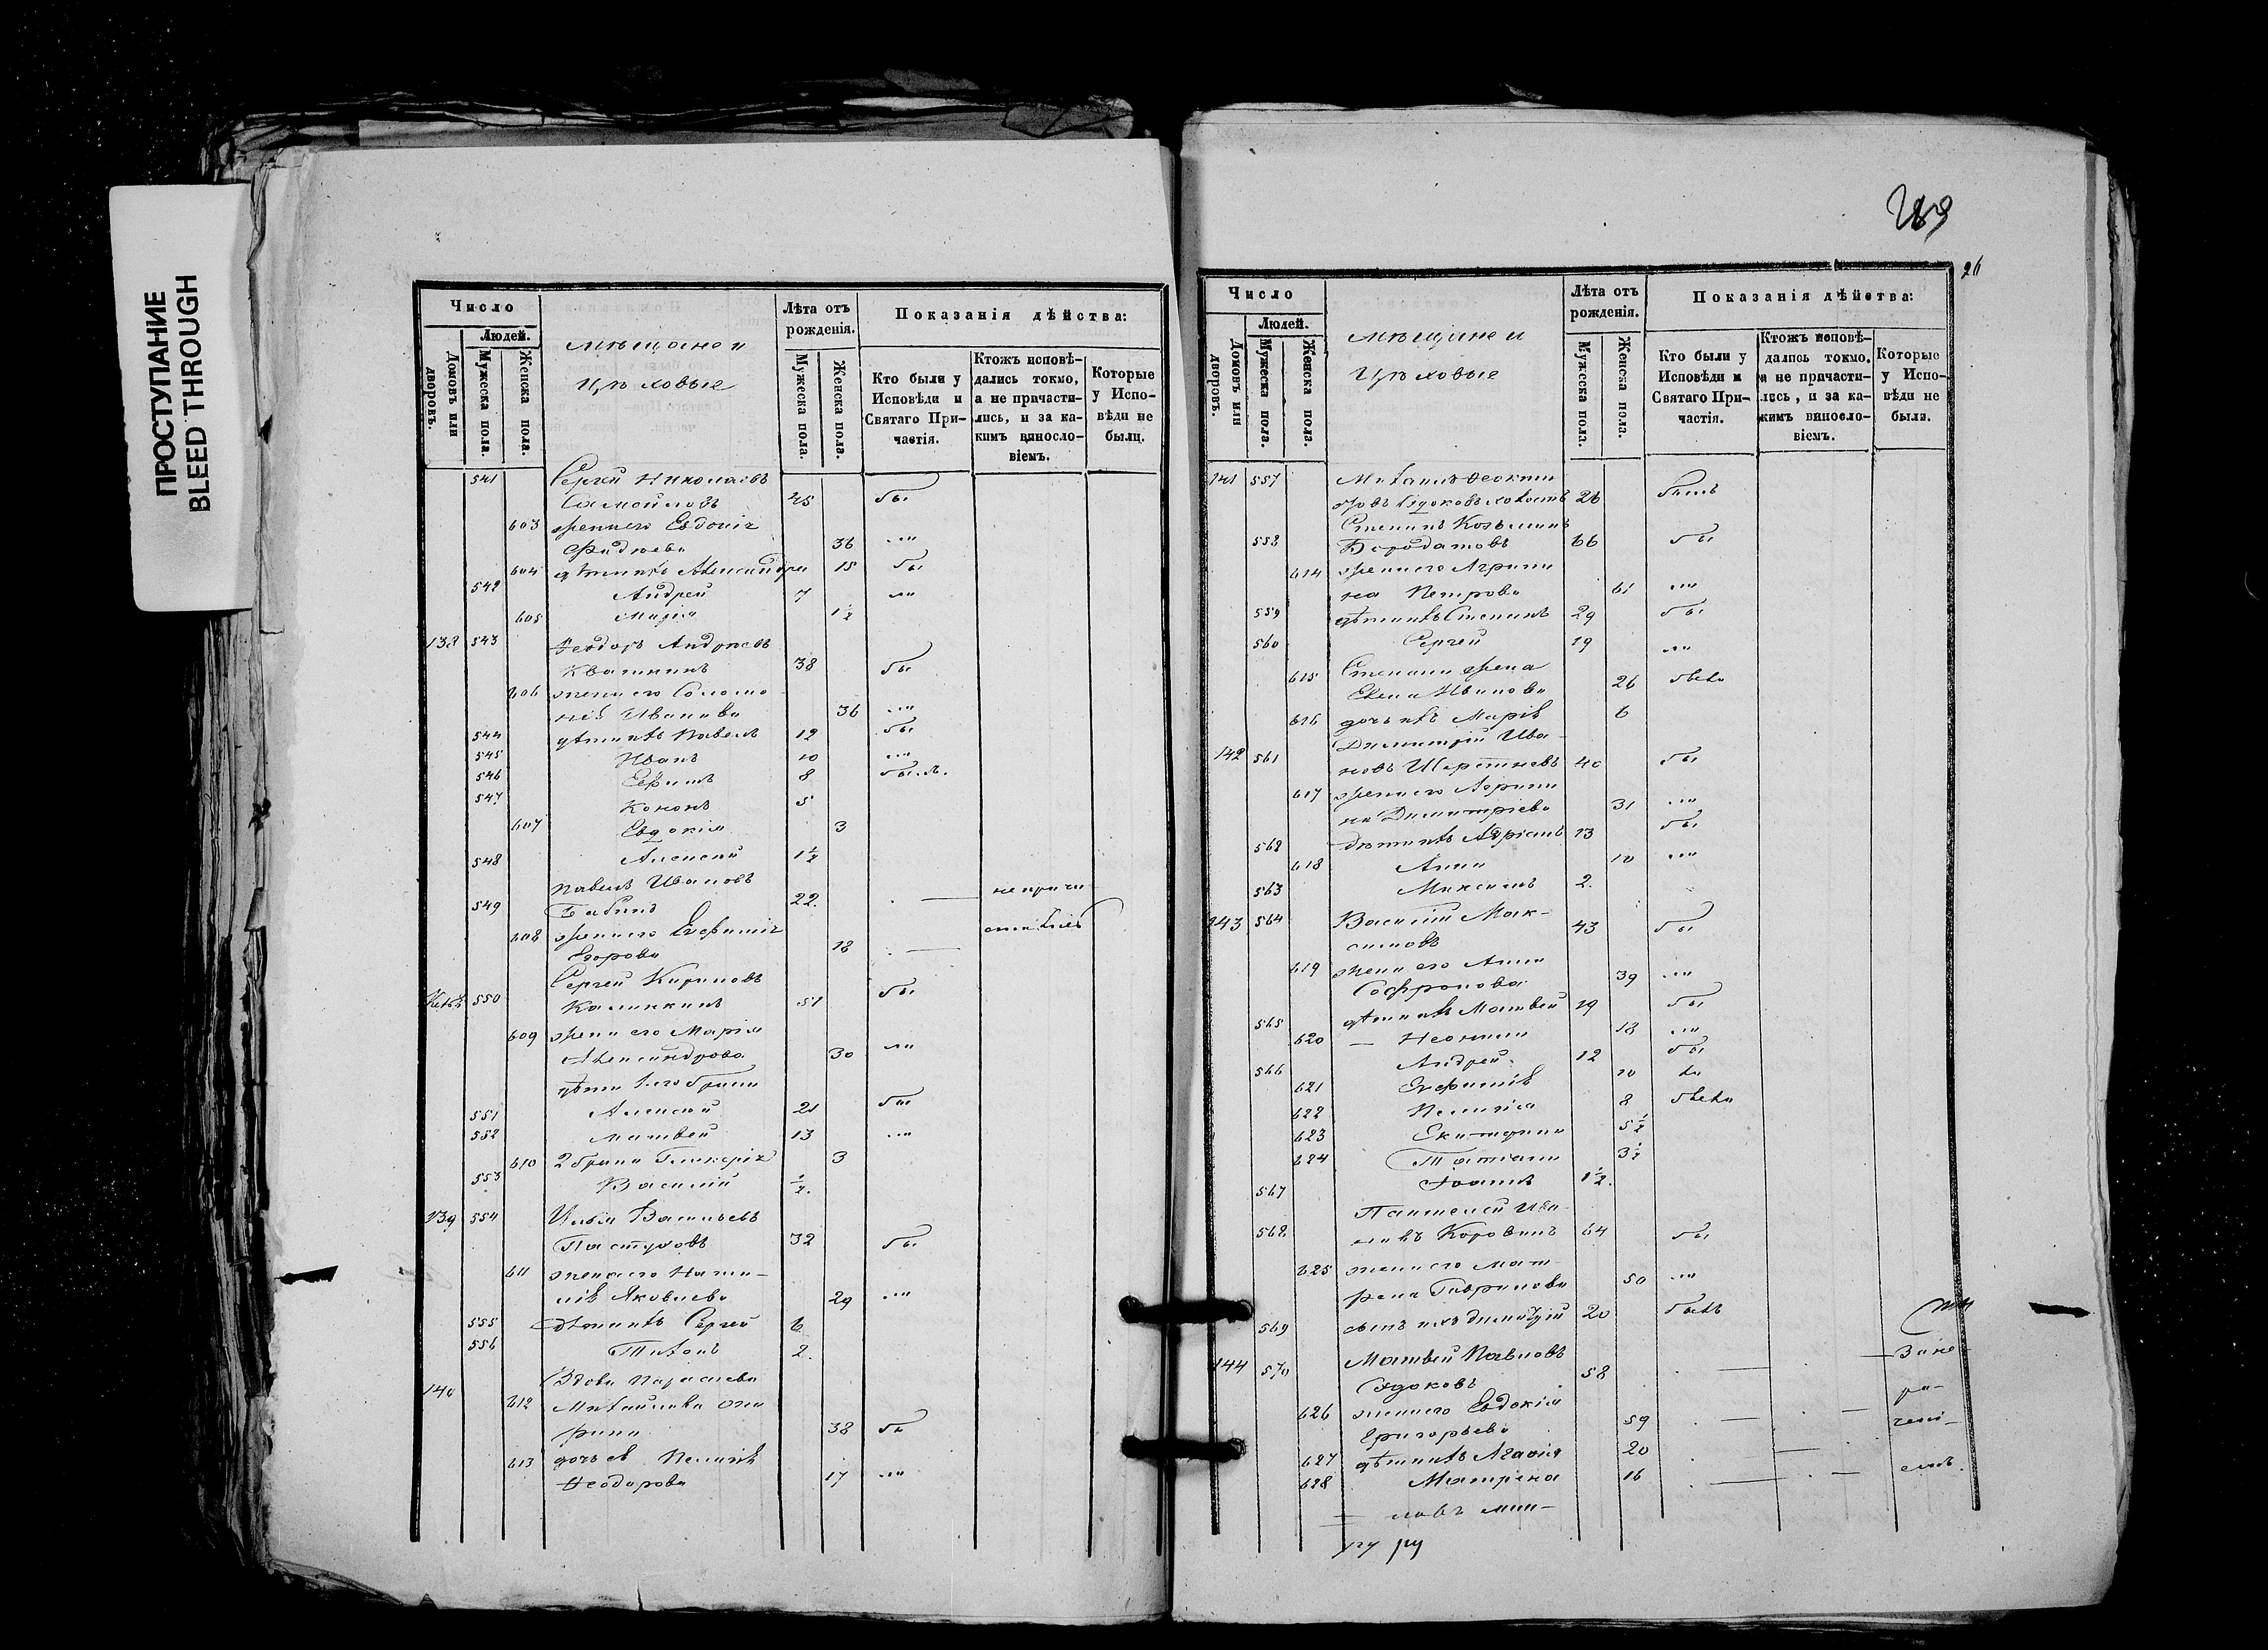 ПРОСТУПАНИЕ
BLEED THROUGH
Число
Людей.
Домовъ или дворовъ.
Мужеска пола.
Женска пола.
Мѣщане и
Цѣховые
Лѣта отъ
рожденія.
Мужеска пола.
Женска пола.
Показанія дѣйства:
Кто были у
Исповѣди и
Святаго При-
частія.
Ктожъ исповѣ-
дались токмо,
а не причасти-
лись, и за ка-
кимъ винословіемъ.
Которые
у Испо-
вѣди не
были.
541 Сергѣй Николаевъ
Самойловъ 45 бы
603 жена его Евдокія
Фадѣева 36 ""
604 дѣти ихъ Александра 15 бы
542 Андрей 7 ""
605 Марія 1½
138 543 Ѳеодоръ Андреевъ
Квашнинъ 38 бы
606 жена его Соломо
нія Иванова 36 ""
544 дѣти ихъ Павелъ 12 бы
545 Иванъ 10 ""
546 Ефимъ 8 был.
547 Кононъ 5
607 Евдокія 3
548 Алексей 1½
Павелъ Ивановъ
549 Бабинъ 22. не прича
608 жена его Евфимія
Егорова 18
Сергей Кириловъ
550 Калинкинъ 51 бы
609 жена его Марія
Александрова 30 ""
дѣти 1-го брака
551 Алексей 21 бы
552 Матвей 13 ""
610 2 брака Гликерія 3
553 Василій ½.
139 554 Илья Васильевъ
Пастуховъ 32 бы
611 жена его Ната-
лія Яковлева 29 ""
555 дѣти ихъ Сергей 6
556 Тихонъ 2.
Вдова Параскева
140 612 Михайлова
38 бы
613 дочь ея Пелагія
Ѳеодорова 17 ""
26
Число
Людей.
Домовъ или дворовъ.
Мужеска пола.
Женска пола.
Мѣщане и
Цѣховые
Лѣта отъ
рожденія.
Мужеска пола.
Женска пола.
Показанія дѣйства:
Кто были у
Исповѣди и
Святаго При-
частія.
Ктожъ исповѣ-
дались токмо,
а не причасти-
лись, и за ка-
кимъ винословіемъ.
Которые
у Испо-
вѣди не
были.
141 557 Михаилъ Ѳеокти
стовъ Сѣдоковъ холостъ 26 былъ
Степанъ Козьминъ
558 Бородатовъ 66 бы
614 жена его Агрипи
на Петрова 61 ""
559 дѣти ихъ Степанъ 29 бы
560 Сергей 19 ""
615 Степана жена
Елена Иванова 26 была
616 дочь ихъ Марія 6
Димитрій Ива
142 561 новъ Шерстневъ 40 бы
617 жена его Агрипи
на Димитріева 31 ""
562 дѣти ихъ Адріанъ 13 бы
618 Анна 10 ""
563 Максимъ 2.
143 564 Василій Мак-
симовъ 43 бы
619 жена его Анна
Софронова 39 ""
565 дѣти ихъ Матвей 19 бы
620 — Неонила 18 ""
566 Андрей 12 бы
621 Евфимія 10 ла
622 Пелагія 8 была
623 Екатерина 5½
624 Татіана 3½
567 Іоаннъ 1½.
Пантелей Ива
568 новъ Коровинъ 64 бы
625 жена его Мат-
рена Гаврилова 50 ""
569 сынъ ихъ Димитрій 20 былъ
144 570 Матвей Павловъ
Сѣдоковъ 58
Зане-
626 жена его Евдокія
Григорьева 59
ра-
627 дѣти ихъ Агафія 20
628 Матрена 16